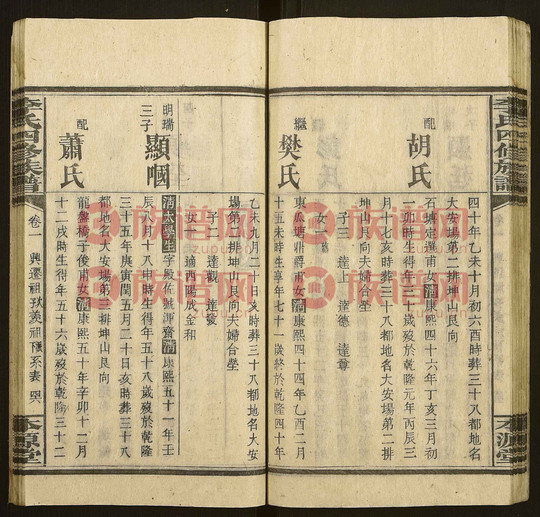 李氏四修族譜
本源堂
四十年乙未十月初六酉時葬三十八都地名
大安場第二排坤山艮向
配
胡氏
石塘定選甫女清康熙四十六年丁亥三月初
一卯時生得年三十歲歿於乾隆元年丙辰三
月十七亥時葬三十八都地名大安場第二排
坤山艮向夫婦合塋
子三 達上 達德 達尊
女一
繼
樊氏
東瓜塘鼎爵甫女清康熙四十四年乙酉二月
十五未時生享年七十一歲終於乾隆四十年
乙未九月二十日亥時葬三十八都地名大安
場第三排坤山艮向夫婦合塋
子二 達觀
女一 適西陽成金和
明瑞
三子
顯嘓
清太學生字殿佐號渾齋清康熙五十一年壬
辰八月十八申時生得年五十八歲歿於乾隆
三十五年庚寅閏五月二十日亥時葬三十八
都地名大安場第三排坤山艮向
配
蕭氏
龍盤橋子俊甫女清康熙五十年辛卯十二月
十二戌時生得年五十六歲歿於乾隆三十二
李氏四修族譜
卷一
興遷祖秋美祖下系表
本源堂
族譜网
zupu.cn